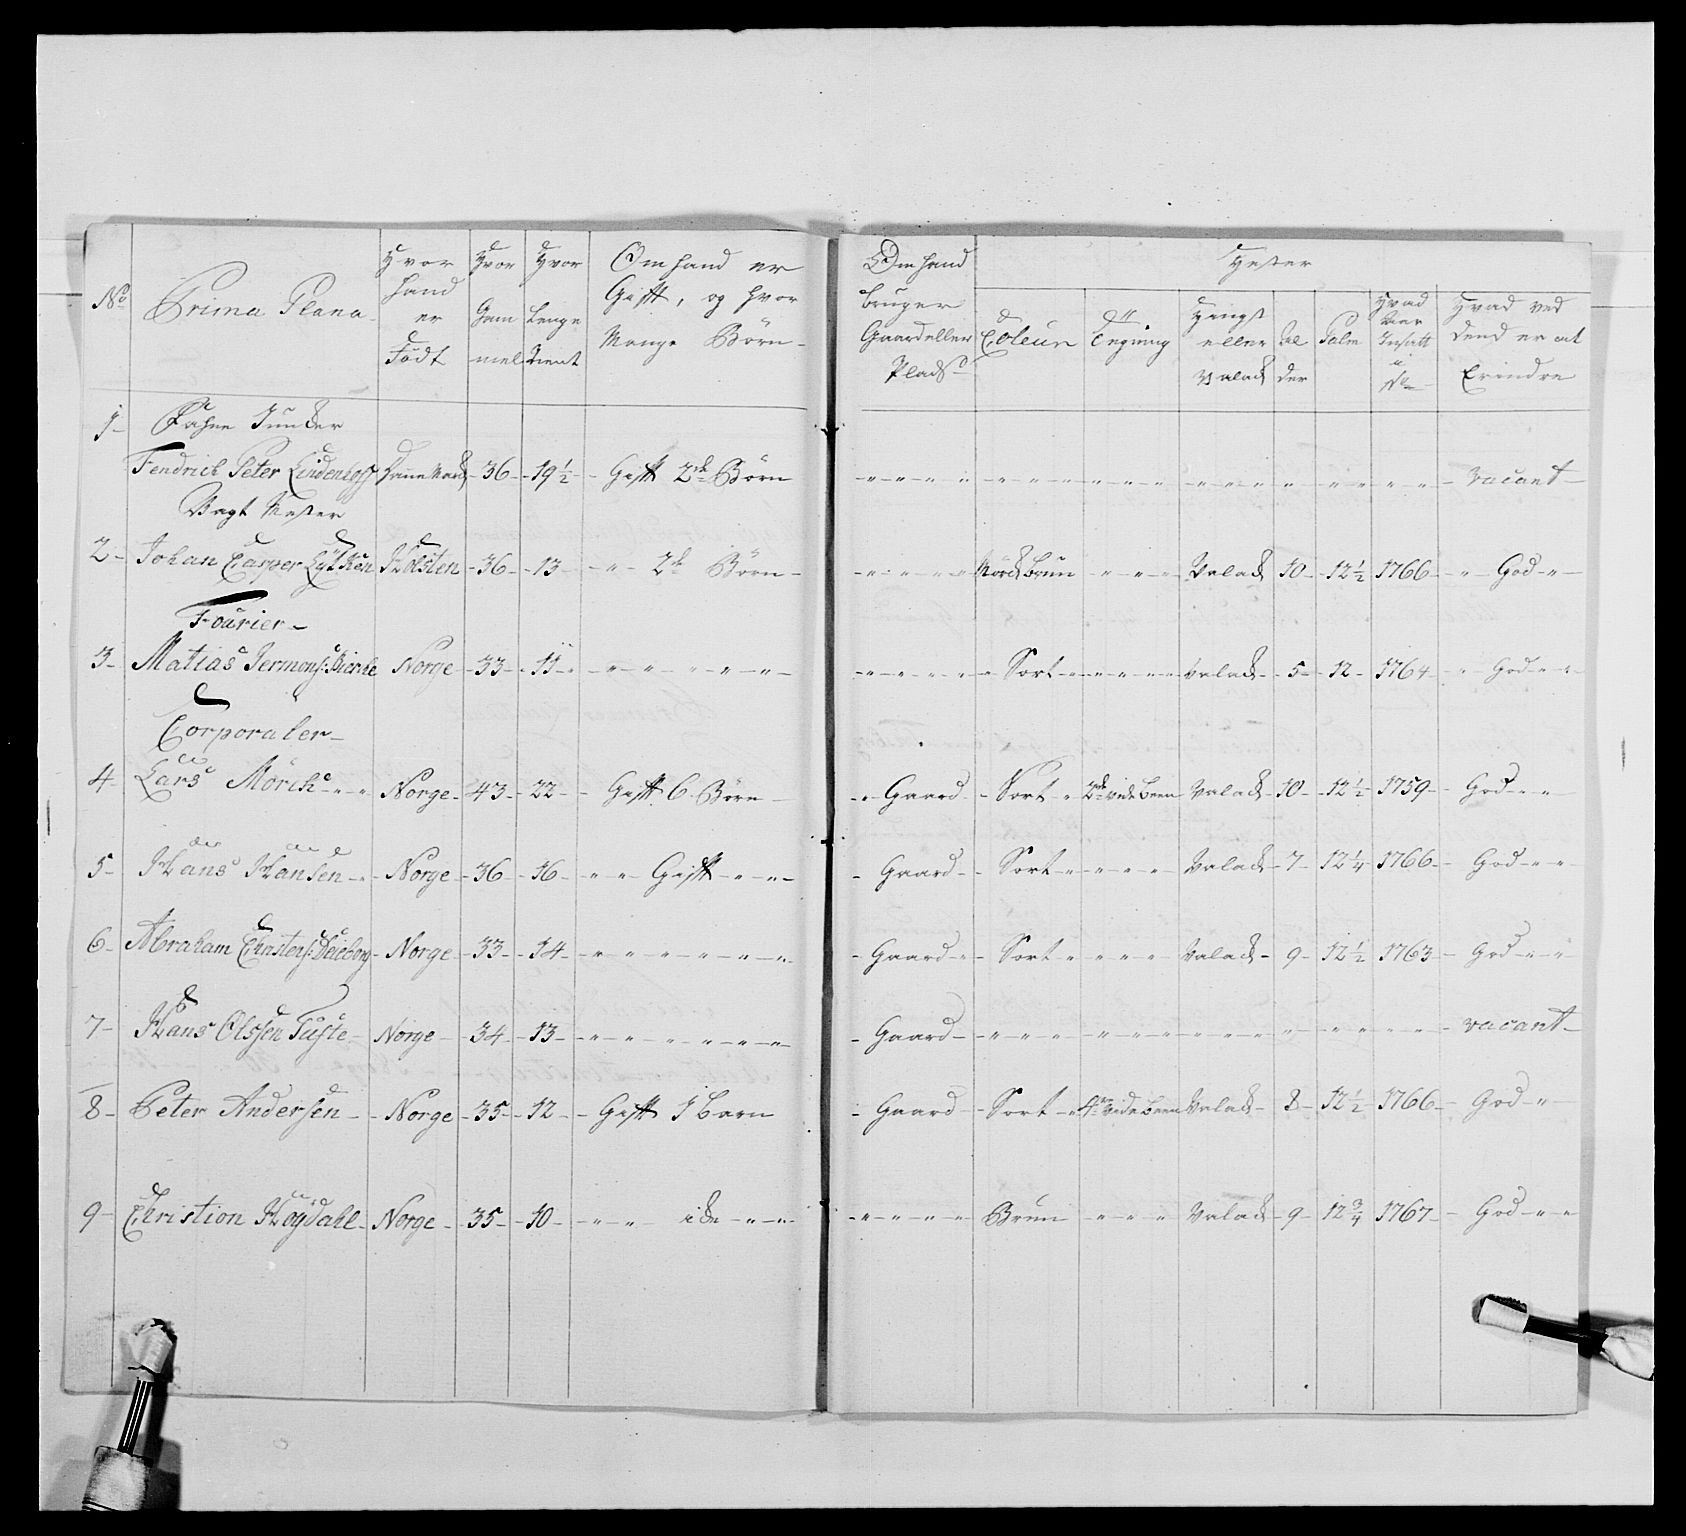 No Prima Plana Hvor hand er Födt Hvor Gammel Hvor Lenge Tient Om hand er Gift, og hvor Mange Börn Om hand bruger Gaard eller Plads Hester
Coleur Tegning Hingst eller Valack Alder Palm Hvad Aar Insatt i No Hvad ved dend er at Erindre
1 Fahne Juncker
Fendrich Peter Lindenhoff Dannemark 36 19 1/2 Gift 2de Börn vacant
Vagt Mester
2 Johan Casper Lytken Holsten 36 13 " 2de Börn Mörck Brun Valack 10 12 1/2 1766 God
Fourier
3 Matias Jermons: Bierke Norge 33 11 Sort Valack 5 12 1764 God
Corporaler
4 Lars Mörch Norge 43 22 Gift 6 Börn Gaard Sort 2de hvide Been Valack 10 12 1/2 1759 God
5 Hans Hansen Norge 36 16 Gift Gaard Sort Valack 7 12 1/4 1766 God
6 Abraham Christens: Norge 33 14 Gaard Sort Valack 9 12 1/2 1763 God
7 Hans Olssen Tuste Norge 34 13 Gaard vacant
8 Peter Andersen Norge 35 12 Gift 1 Barn Gaard Sort 4re hvide Been Valack 8 12 1/2 1766 God
9 Christian Høydahl Norge 35 10 Brun Valack 9 12 3/4 1767 God